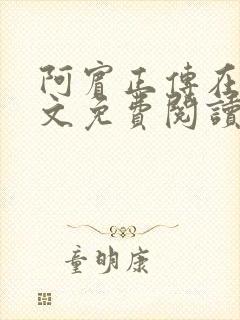 阿賓正傳在
文免費閱讀
童明康